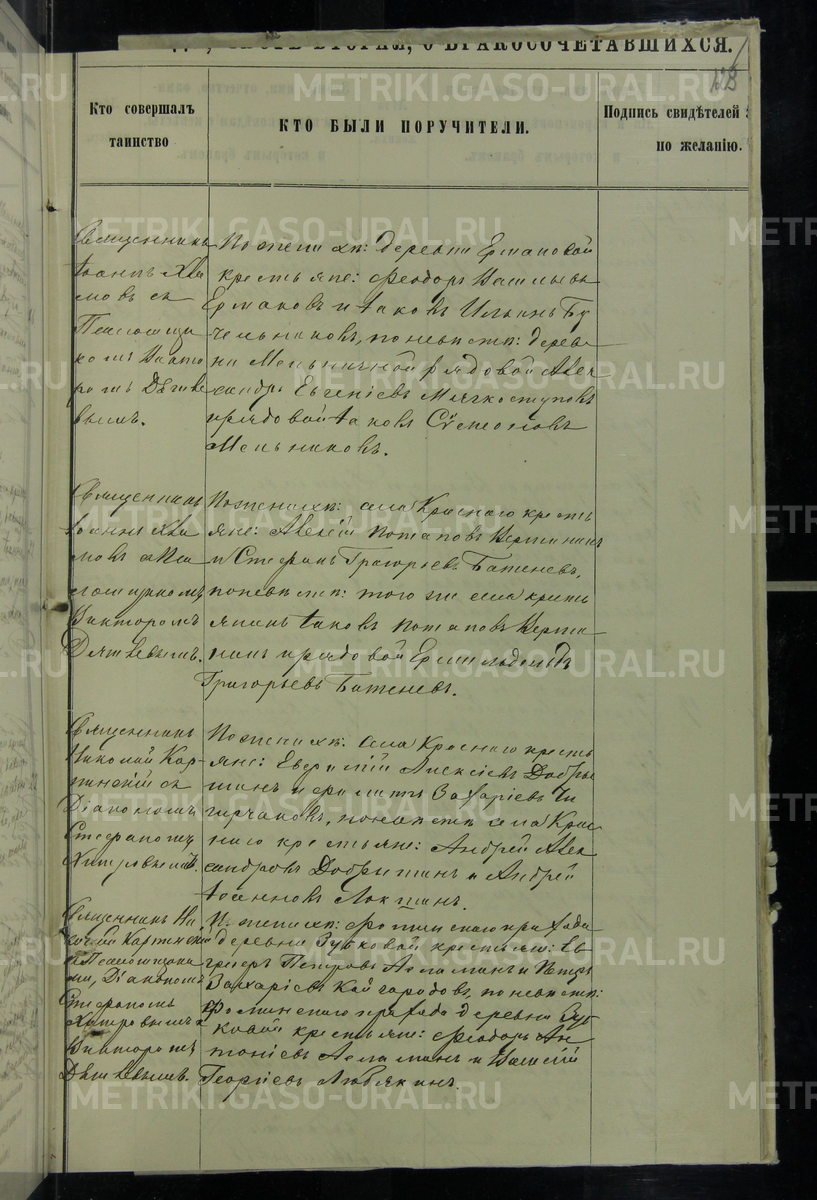 ЧАСТЬ ВТОРАЯ, О БРАКОСОЧЕТАВШИХСЯ.
Кто совершалъ
таинство
КТО БЫЛИ ПОРУЧИТЕЛИ.
Подпись свидѣтелей
по желанію.
Священникъ
Іоаннъ
съ
Псаломщи
комъ Викто
ромъ Дягиле
вымъ.
По женихѣ: деревни Ермаковой
крестьяне: Феодоръ Васильевъ
Ермаковъ и Іаковъ Ильинъ Бу
чельниковъ, по невѣстѣ: дерев
ни Мельничной рядовой Алек
сандръ Евгеніевъ Мягкоступовъ
и рядовой Іаковъ Сѵмеоновъ
Мельниковъ.
Священникъ
Іоаннъ
съ Пса
ломщикомъ
Викторомъ
Дягилевымъ.
По женихѣ: села Краснаго кресть
яне: Алексій Потаповъ
и Стефанъ Григорьевъ Батеневъ,
по невѣстѣ: того же села кресть
янинъ Іаковъ Потаповъ
и рядовой
Григорьевъ Батеневъ.
Священникъ
Николай Кар
пинскій съ
Діакономъ
Стефаномъ
Хитровымъ.
По женихѣ: села Краснаго кресть
яне: Евфимій Алексіевъ Добры
нинъ и Филиппъ Захаріевъ Чи
гирчаковъ, по невѣстѣ села Крас
наго крестьяне: Андрей Алек
сандровъ Добрынинъ и Андрей
Іоанновъ Локтинъ.
Священникъ Ни
колай Карпинскій
съ Псаломщика
ми, Діакономъ
Стефаномъ
Хитровымъ и
Викторомъ
Дягилевымъ.
По женихѣ: Фоминскаго прихода
деревни Зубковой крестьяне: Ев
графъ Петровъ Асламинъ и Петръ
Захаріевъ Кайгородовъ, по невѣстѣ:
Фоминскаго прихода деревни Зуб
ковой крестьяне: Феодоръ Ан
тоніевъ Асламинъ и Василій
Георгіевъ Любякинъ.
METRIKI.GASO-URAL.RU